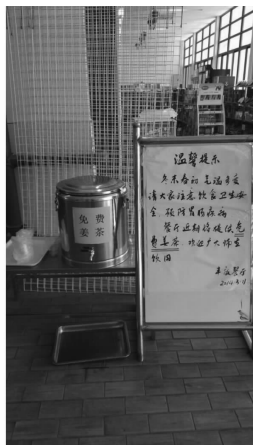 免费
姜茶
温馨提示
冬末春初 气温多变
请大家注意饮食卫生安
全，预防胃肠疾病
餐厅近期将提供免
费姜茶，欢迎广大师生
饮用